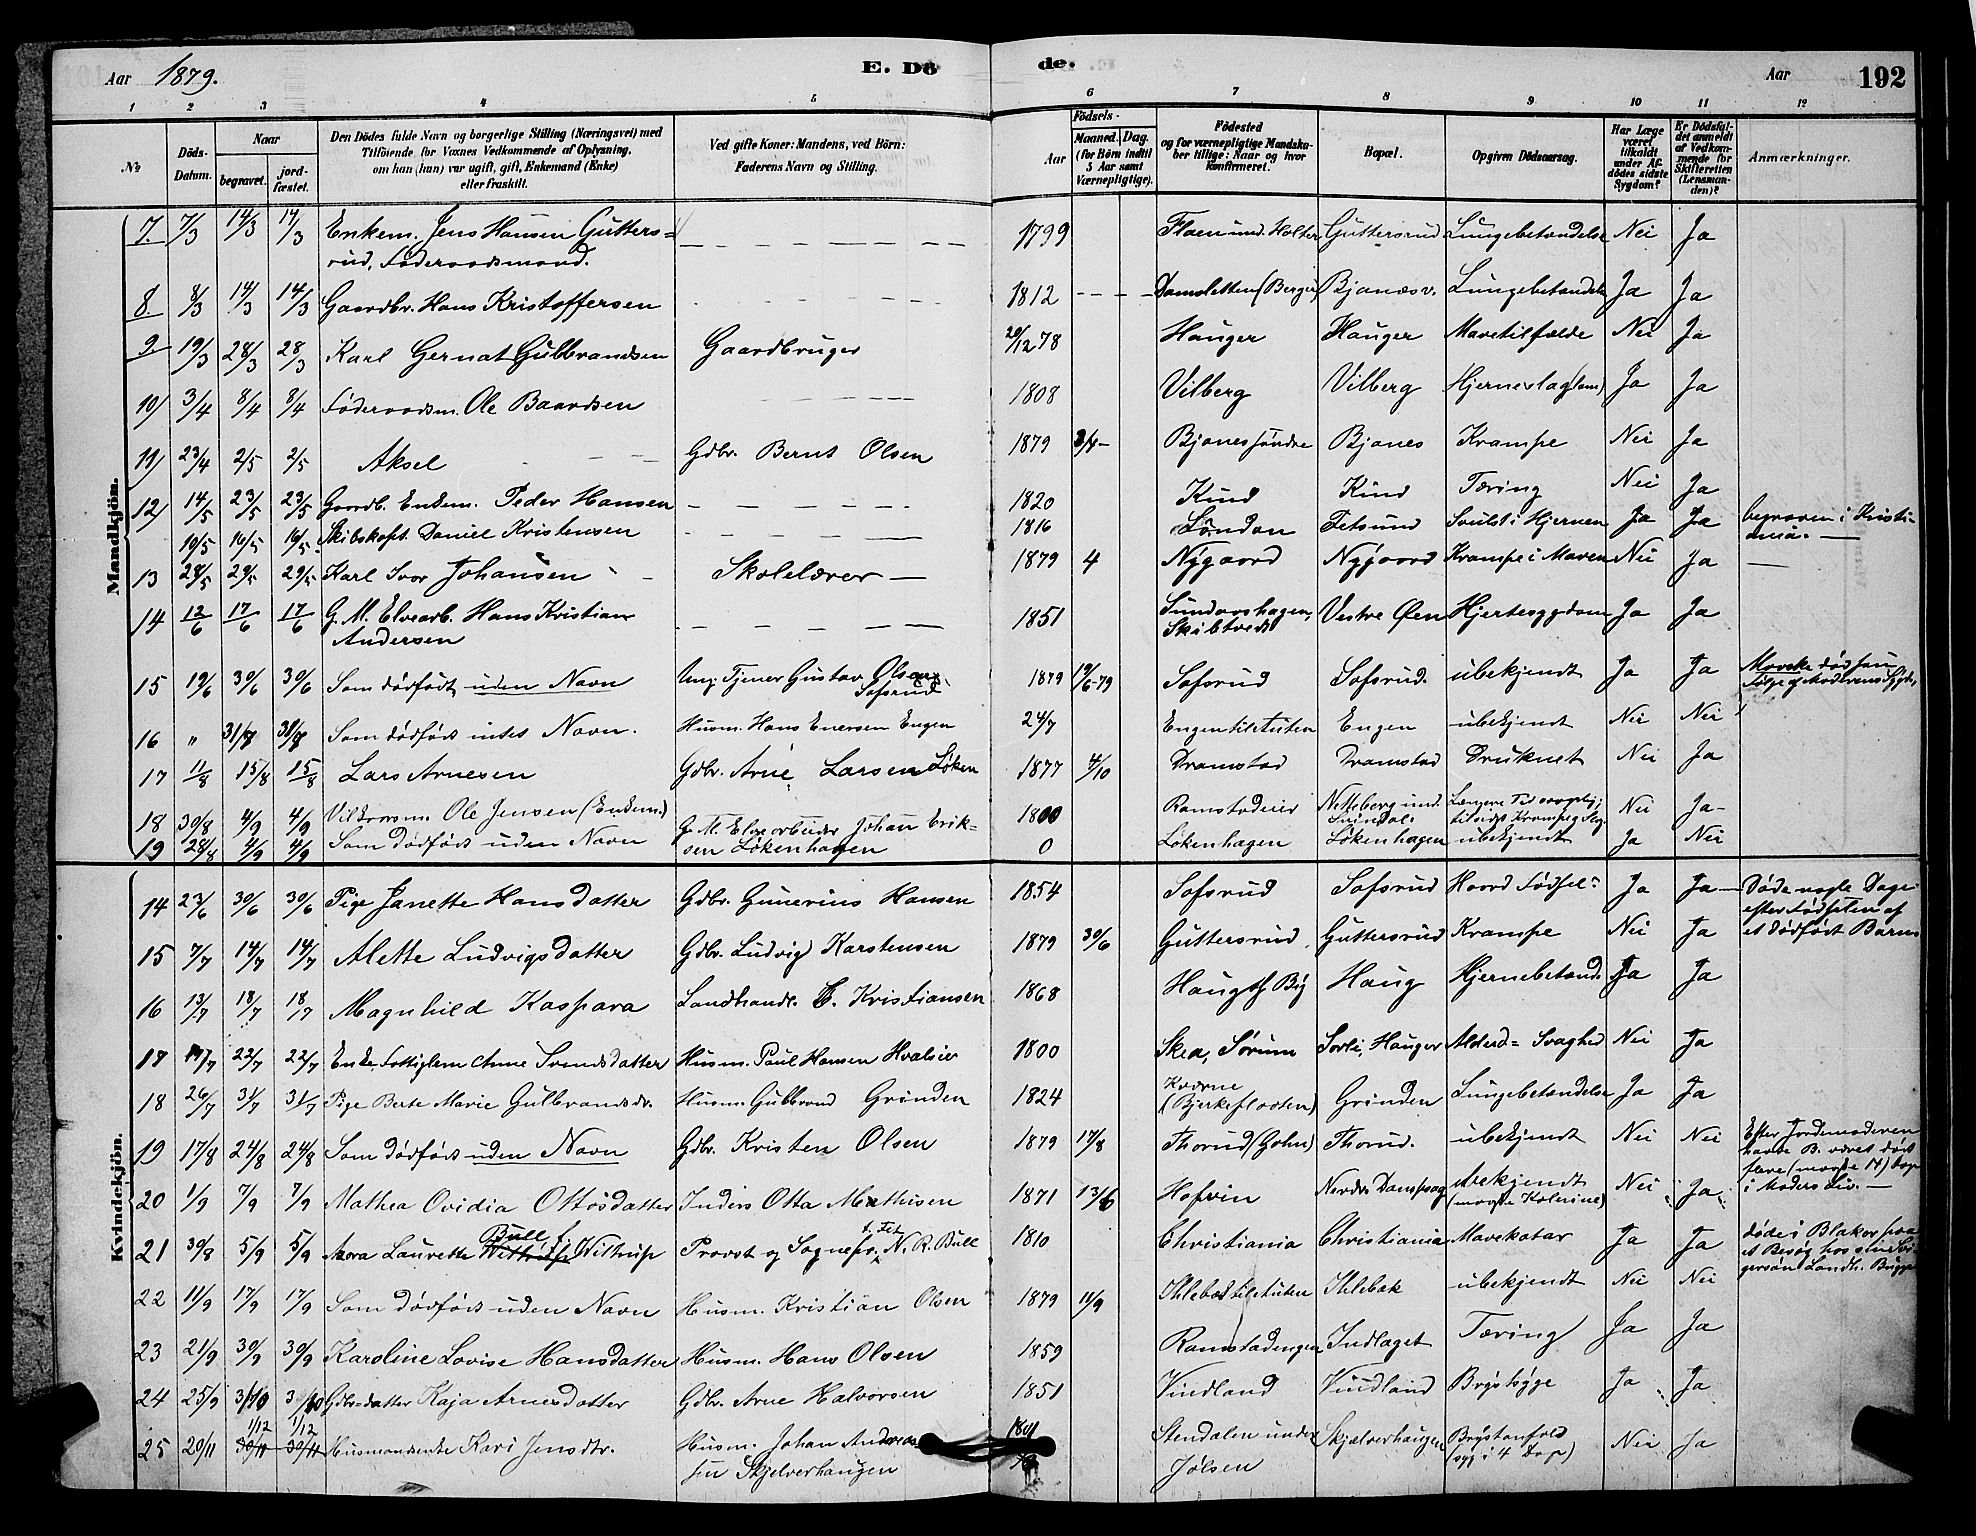 Aar 1879.
E. Dö
de.
Aar
192
1 2 3 4 5 6 7 8 9 10 11 12
No
Döds-Datum.
Naar
begravet.
jordfæstet.
Den Dödes fulde Navn og borgerlige Stilling (Næringsvei) med
Tilföiende for Voxnes Vedkommende af Oplysning,
om han (hun) var ugift, gift, Enkemand (Enke)
eller fraskilt.
Ved gifte Koner: Mandens, ved Börn:
Faderens Navn og Stilling.
Födsels-
Aar
Maaned. Dag.
(for Börn indtil
5 Aar samt
Værnepligtige).
Födested
og for værnepligtige Mandskaber tillige: Naar og hvor
konfirmeret.
Bopæl.
Opgiven Dödsaarsag.
Har Læge
været
tilkaldt
under Afdödes sidste
Sygdom?
Er Dödsfaldet anmeldt
af Vedkommende for
Skifteretten
(Lensmanden)?
Anmærkninger.
Mandkjön.
7. 7/3 14/3 14/3 Enkem. Jens Hansen Gutters= 1799 Flaen und. Holter Guttersrud Lungebetændelse Nei Ja
rud, Föderaadsmand.
8. 8/3 14/3 14/3 Gaardbr. Hans Kristoffersen 1812 Damsletten (Berger) Bjanæs v. Lungebetændelse Ja Ja
9 19/3 28/3 28/3 Karl Gernat Gulbrandsen Gaardbruger 20/12 78 Hauger Hauger Mavetilfælde Nei Ja
10 3/4 8/4 8/4 Föderaadsm. Ole Baardsen 1808 Vilberg Vilberg Hjerneslag Ja Ja
11 23/4 2/5 2/5 Aksel Gdbr. Bernt Olsen 1879 Bjanes söndre Bjanes Krampe Nei Ja
12 14/5 23/5 23/5 Gaardb. Enkem. Peder Hansen 1820 Kind Kind Tæring Nei Ja
10/5 16/5 16/5 Skibskapt. Daniel Kristensen 1816 London Fetsund Svulst i Hjernen Ja Ja begraven i Kristi-
ania.
13 28/5 29/5 29/5 Karl Ivor Johansen Skolelærer 1879 4 Nygaard Nygaard Krampe i Maven Nei Ja
14 12/6 17/6 17/6 G. M. Elvearb. Hans Kristian 1851 Vestre Øen Hjertesygdom Ja Ja
Andersen Skibtvedt
15 19/6 30/6 30/6 Som dödfödt uden Navn Ung. Tjener Gustav Olsen 1879 19/6-79 Sofsrud Sofsrud. ubekjendt Ja Ja
Sofsrud
16 " 31/8 31/8 Som dödfödt intet Navn. Husm. Hans Enersen Engen 24/7 Engen Engen ubekjendt Nei Nei
17 11/8 15/8 15/8 Lars Arnesen Gdbr. Arne Larsen Løken 1877 4/10 Dramstad Dramstad Druknet Nei Ja
18 30/8 4/9 4/9 Vilkaarsm. Ole Jensen (Enkem.) 1800 Ramstadeier Nei Ja
19 28/8 4/9 4/9 Som dödfödt uden Navn G. M. Elvearbeider Johan Erik- 0 Løkenhagen Løkenhagen ubekjendt Ja Nei
sen Løkenhagen
Kvindekjön.
14 23/6 30/6 30/6 Pige Janette Hansdatter Gdbr. Gunerius Hansen 1854 Sofsrud Sofsrud Haard Födsel Ja Ja Döde nogle Dage
efter Födselen af
et dödfödt Barn
15 7/7 14/7 14/7 Alette Ludvigsdatter Gdbr. Ludvig Karstensen 1879 30/6 Guttersrud Guttersrud Krampe Nei Ja
16 13/7 18/7 18/7 Magnhild Kaspara Landhandl. E. Kristiansen 1868 Haug Hjernebetænd. Ja Ja
17 22/7 22/7 Enke, Fattiglem Anne Svendsdatter Husm. Paul Hansen Hvalsier 1800 Skea, Sørum Sorli, Hauger Alderd= Svaghed Nei Ja
18 26/7 31/7 31/7 Pige Berte Marie Gulbrandsdr. Husm. Gulbrand Grinden 1824 Kværne Grinden Lungebetændelse Ja Ja
(Bjerkeflaaten)
19 17/8 24/8 24/8 Som dödfödt uden Navn Gdbr. Kristen Olsen 1879 17/8 Thorud Thorud. ubekjendt Nei Nei Efter Jordemoderen
havde B. været dödt
flere (maaske 14) Dage
i Moders Liv.
20 1/9 7/9 7/9 Mathea Ovidia Ottosdatter Inders Otto Mathisen 1871 13/6 Hofvin ubekjendt Nei Ja
21 30/8 5/9 5/9 Laurette Bull f. Wiltrup Provst og Sognepr. N. R. Bull 1810 Christiania Christiania Mavekatar Ja Ja döde i Blaker paa
et Besøg hos sine
22 11/9 17/9 17/9 Som dödfödt uden Navn Husm. Kristian Olsen 1879 11/9 Ihlebæk ubekjendt Nei Nei
23 21/9 30/9 30/9 Karoline Lovise Hansdatter Husm. Hans Olsen 1859 Ramstadengen Indlaget Tæring Ja Ja
24 25/9 3/10 3/10 Gdbr=datter Kaja Arnesdatter Gdbr. Arne Halvorsen 1851 Vindland Vindland Brystsyge Ja Ja
1/12 1/12
25 20/11 30/11 30/11 Husmandsenke Kari Jensdtr. Husm. Johan Andrea- Stendalen under Skjælverhaugen Brystanfald Nei Ja
sen Skjelverhaugen Jølsen (syg i 4 Dage)